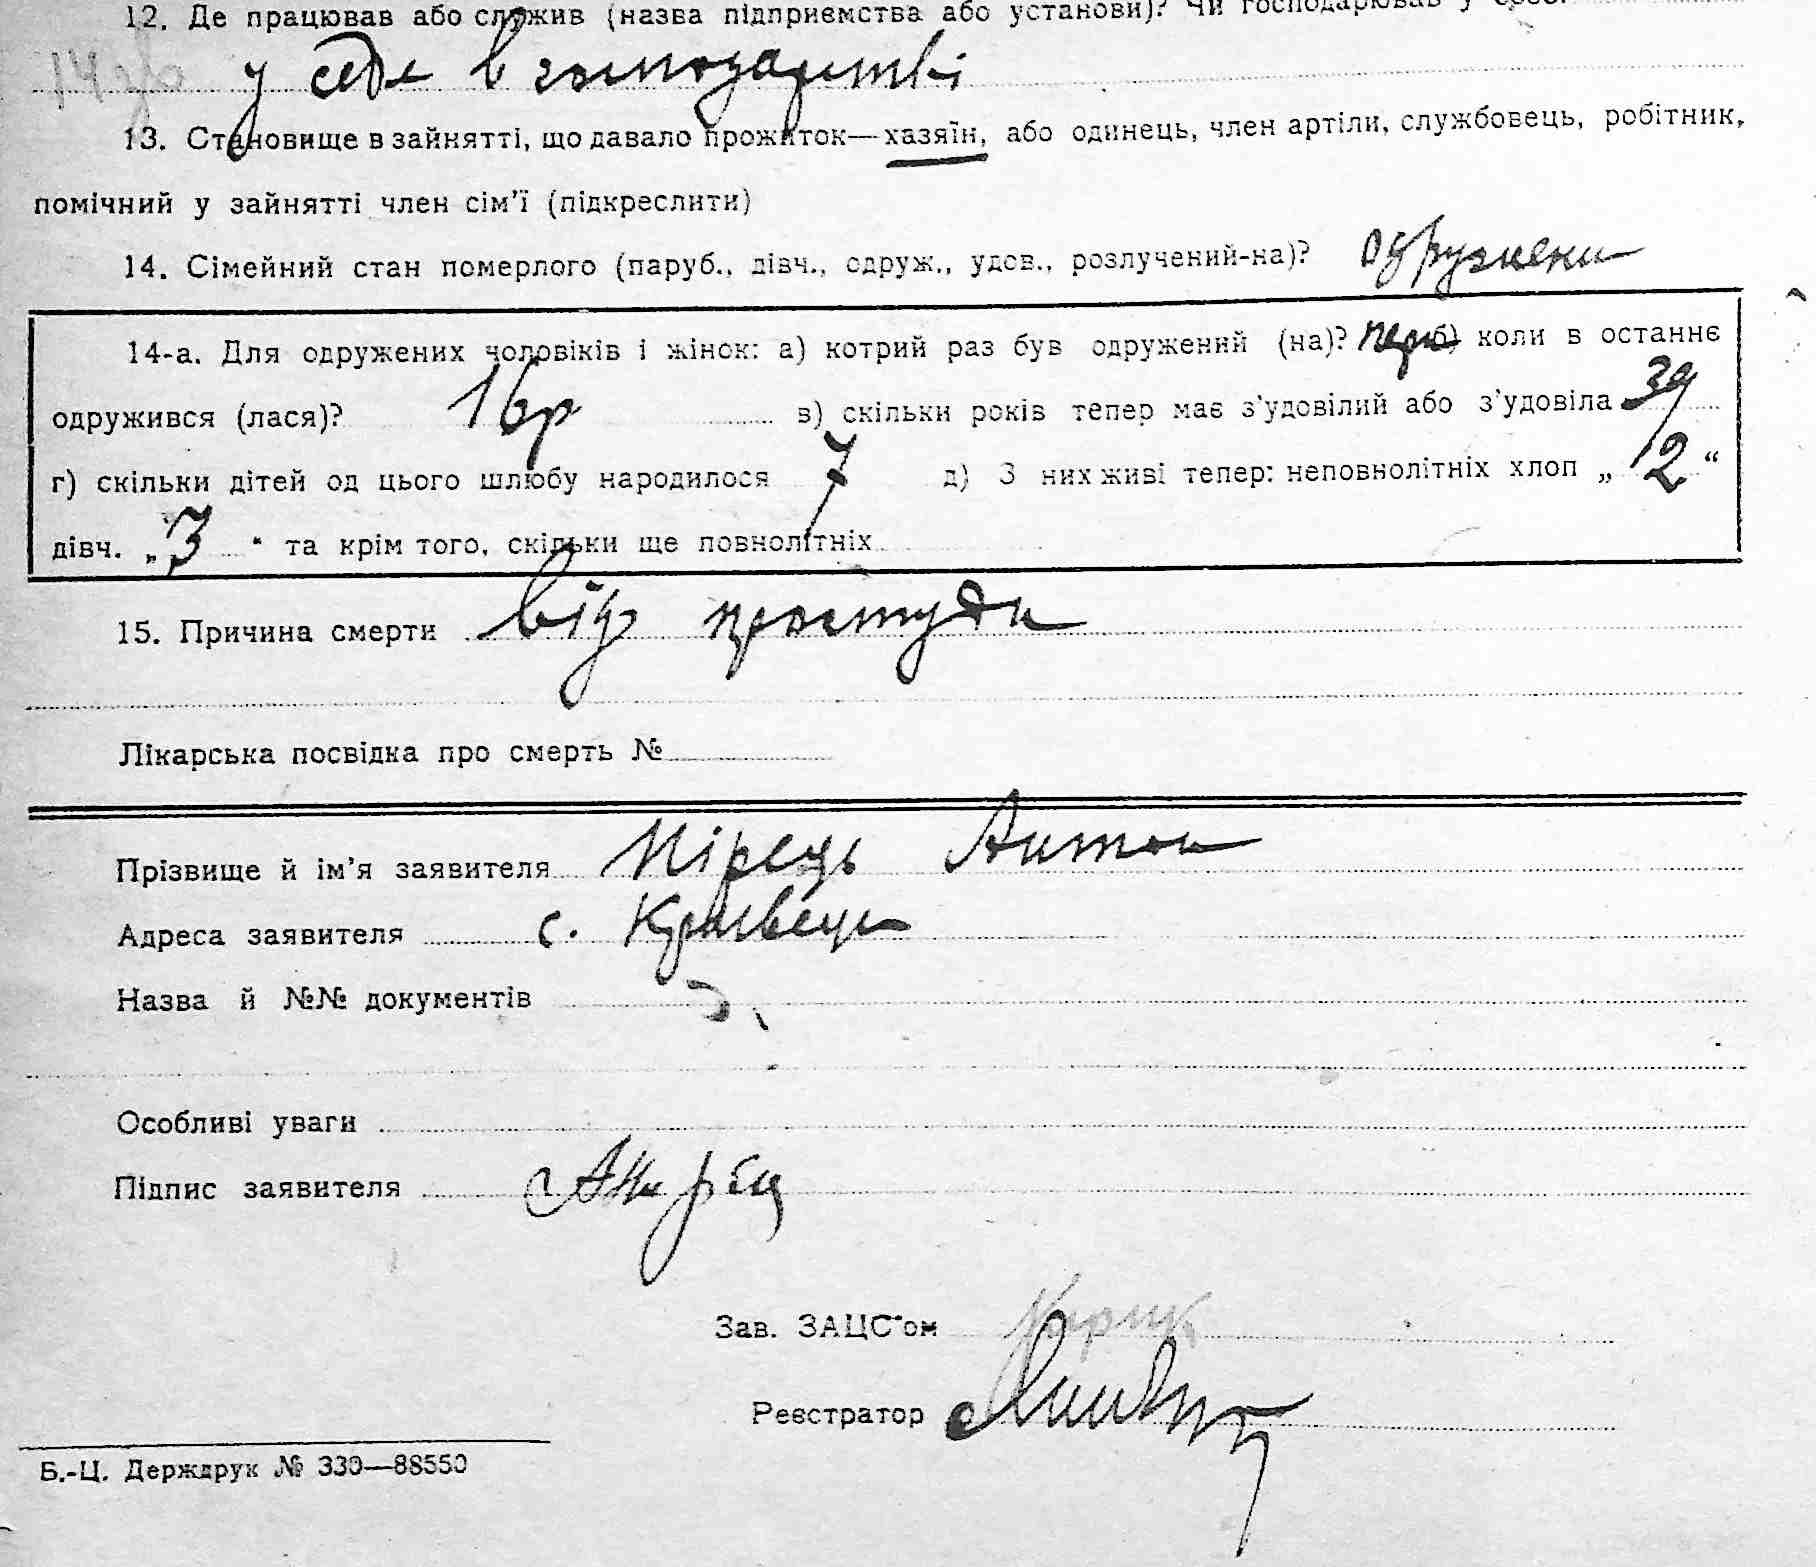 12. Де працював або служив (назва підприємства або установи)? Чи господарював у своє.
у себе в господарстві
13. Становище в зайнятті, що давало прожиток—хазяїн, або одинець, член артіли, службовець, робітник,
помічний у зайнятті член сім'ї (підкреслити)
14. Сімейний стан померлого (паруб., дівч., одруж., удов., розлучений-на)? одружени
14-а. Для одружених чоловіків і жінок: а) котрий раз був одружений (на)? перв б) коли в останнє
одружився (лася)? 16р в) скільки років тепер має з'удовілий або з'удовіла 39
г) скільки дітей од цього шлюбу народилося 7 д) З них живі тепер: неповнолітніх хлоп „ 2 “
дівч. „ 3 “ та крім того, скільки ще повнолітніх
15. Причина смерти від простуди
Лікарська посвідка про смерть №
Прізвище й ім'я заявителя Пірець Антон
Адреса заявителя с.
Назва й №№ документів
Особливі уваги
Підпис заявителя
Зав. ЗАЦС'ом
Реєстратор
Б.-Ц. Держдрук № 330—88550